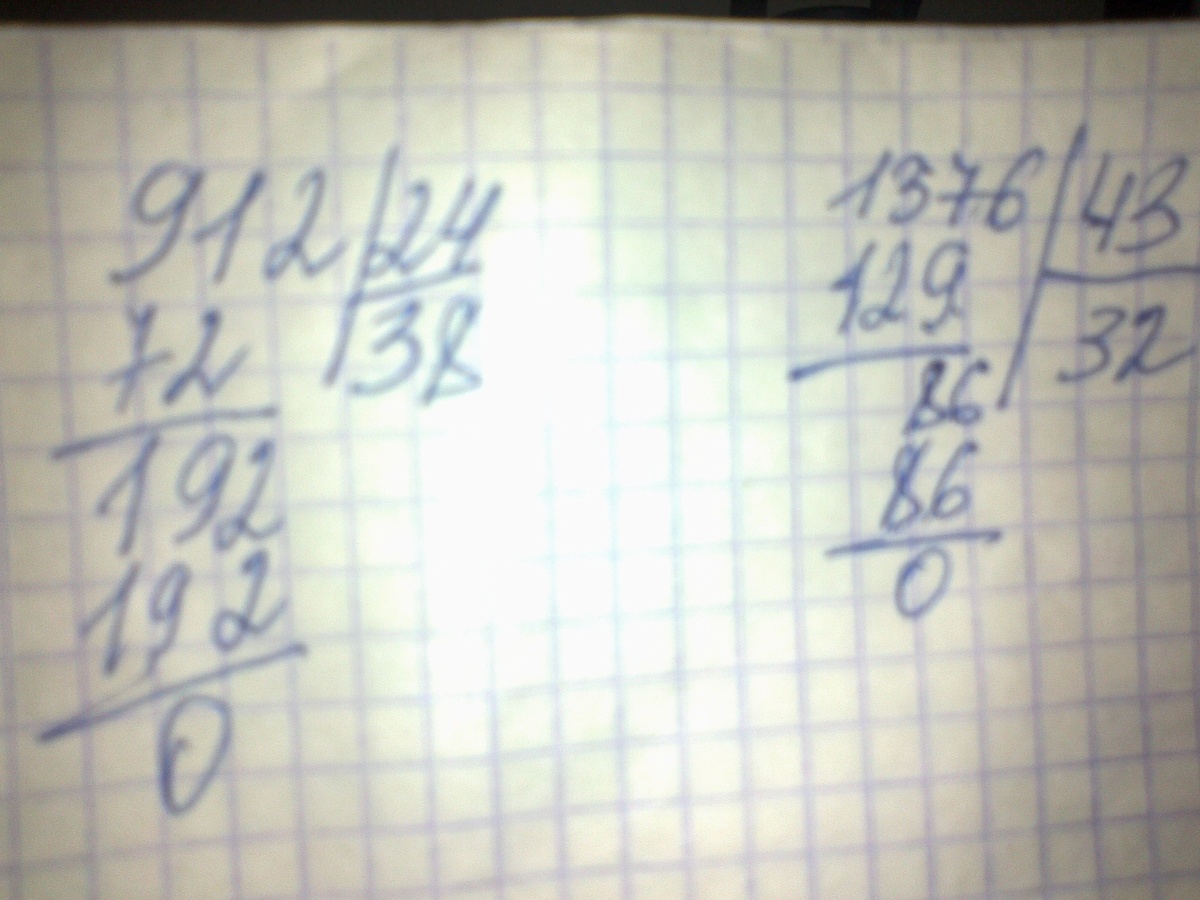 912 24
72 38
192
192
0
1376 43
129 32
86
86
0